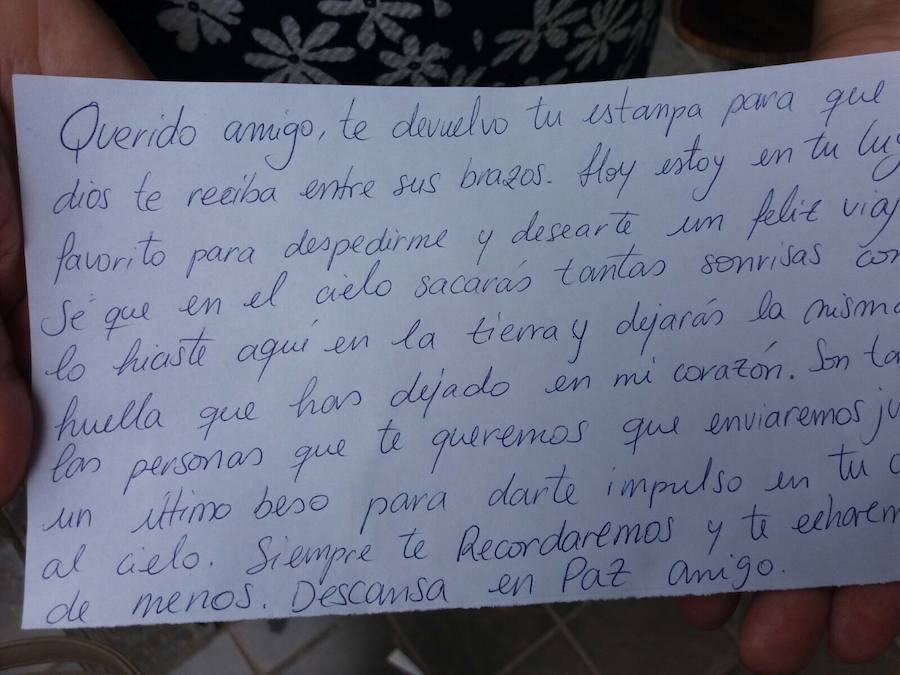 Querido amigo, te devuelvo tu estampa para que
dios te reciba entre sus brazos. Hoy estoy en tu lug
favorito para despedirme y desearte un feliz viaj
Sé que en el cielo sacarás tantas sonrisas com
lo hiciste aquí en la tierra y dejarás la misma
huella que has dejado en mi corazón. Son ta
las personas que te queremos que enviaremos ju
un último beso para darte impulso en tu
al cielo. Siempre te Recordaremos y te echarem
de menos. Descansa en Paz amigo.